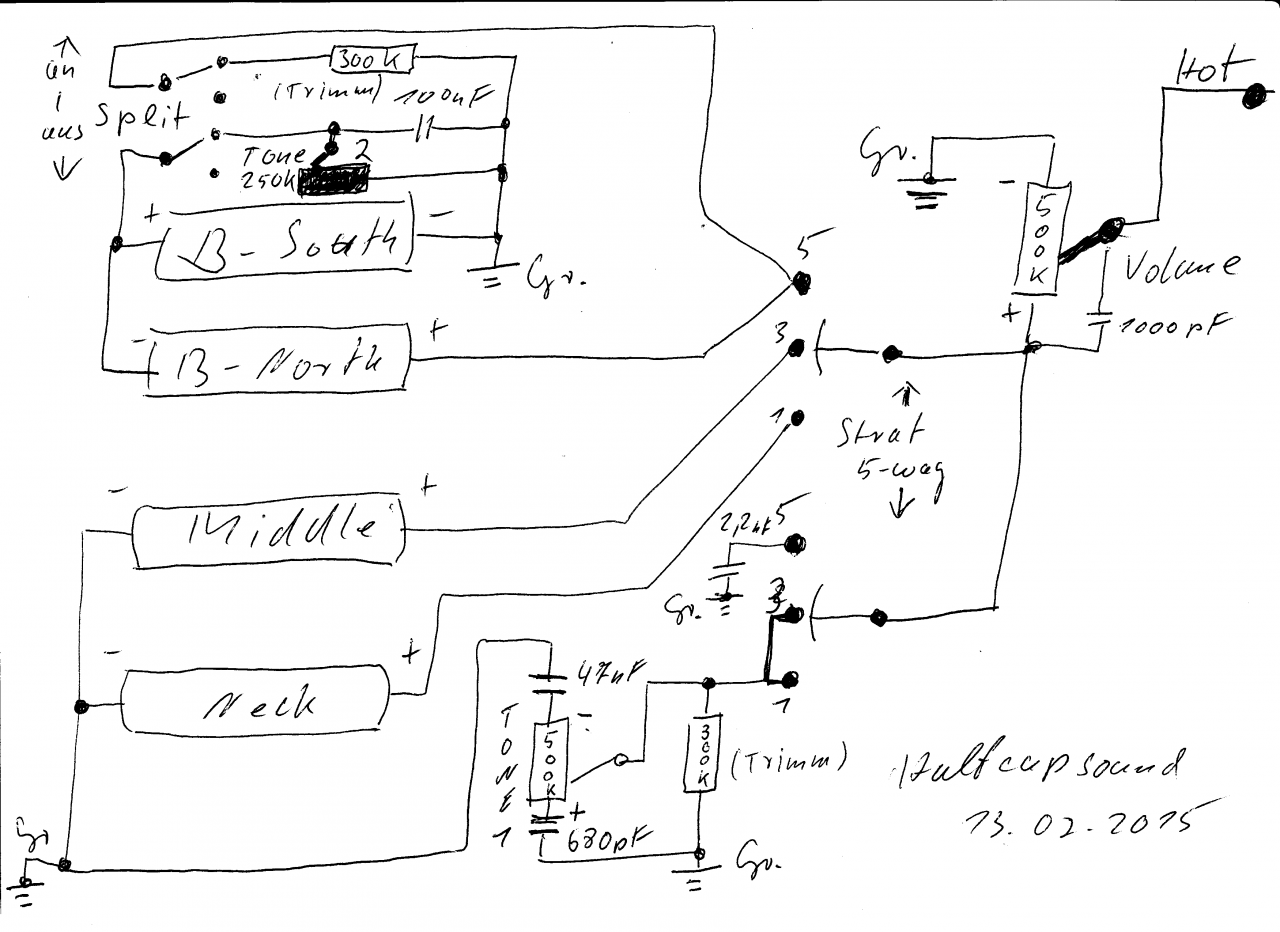 an
aus
Split
300K
(Trimm)
100nF
Tone 2
250K
+ B-South -
Gr.
- B-North +
- Middle +
- Neck +
Gr.
5
3
1
Strat
5-way
2,2nF
5
3
1
Gr.
47nF
TONE 1
-
500K
+
680pF
300K
(Trimm)
Gr.
Gr.
-
500K
+
Volume
1000pF
Hot
Halfcapsound
13.02.2015